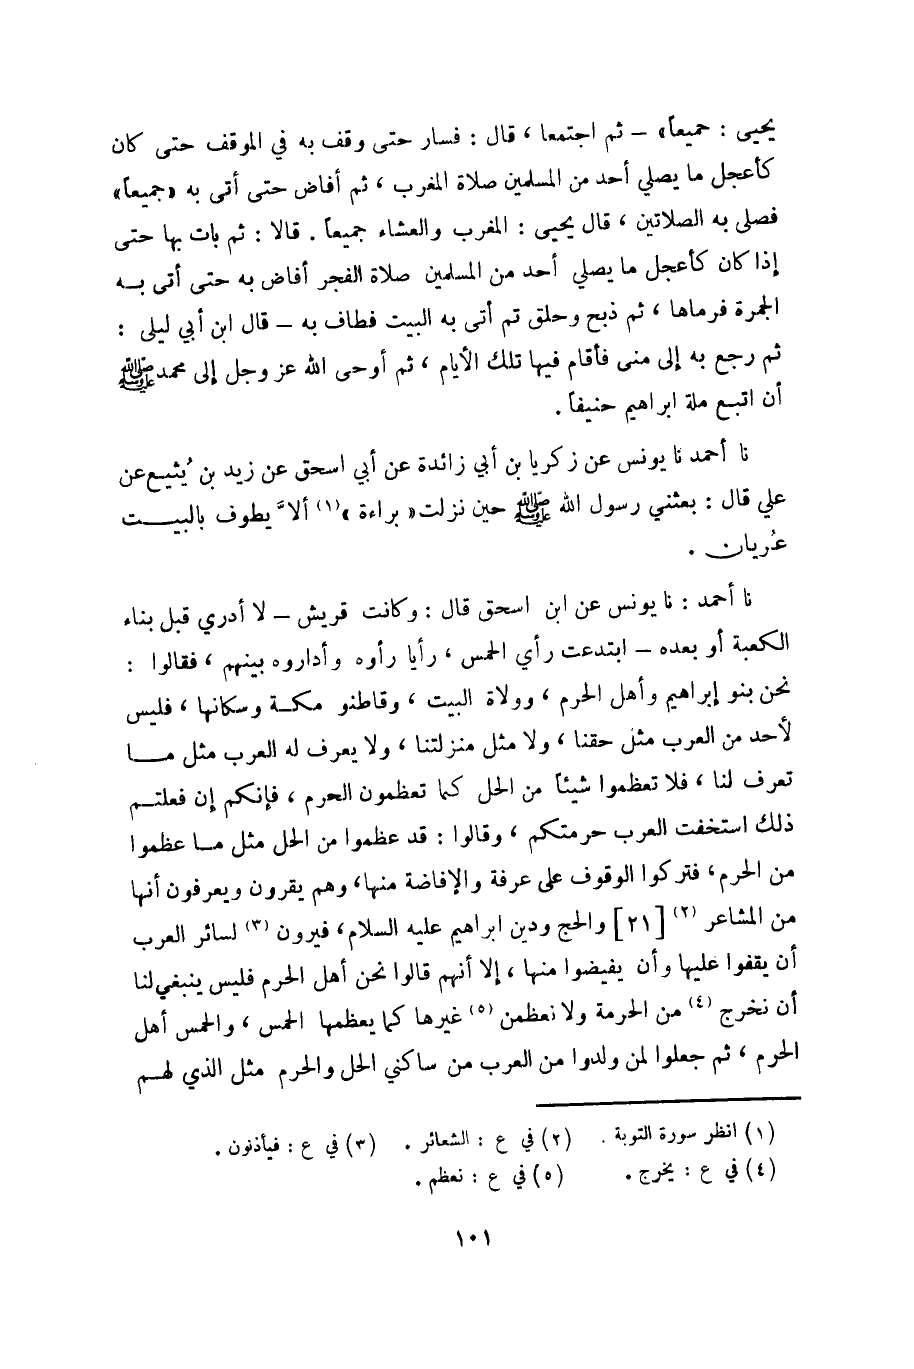 يحيى : جميعاً» – ثم اجتمعا ، قال : فسار حتى وقف به في الموقف حتى كان
كأعجل ما يصلي أحد من المسلمين صلاة المغرب ، ثم أفاض حتى أتى به «جميعاً»
فصلى به الصلاتين ، قال يحيى : المغرب والعشاء جميعاً . قالا : ثم بات بها حتى
إذا كان كأعجل ما يصلي أحد من المسلمين صلاة الفجر أفاض به حتى أتى بـه
الجمرة فرماها ، ثم ذبح وحلق تم أتى به البيت فطاف به – قال ابن أبي ليلى :
ثم رجع به إلى منى فأقام فيها تلك الأيام ، ثم أوحى الله عز وجل إلى محمد ﷺ
أن اتبع ملة ابراهيم حنيفاً .
نا أحمد نا يونس عن زكريا بن أبي زائدة عن أبي اسحق عن زيد بن يُثيع عن
علي قال : بعثني رسول الله ﷺ حين نزلت « براءة » (١) ألاَّ يطوف بالبيــت
عُريان .
نا أحمد : نا يونس عن ابن اسحق قال : وكانت قريش – لا أدري قبل بناء
الكعبة أو بعده – ابتدعت رأي الحمس ، رأيا رأوه وأداروه بينهم ، فقالوا :
نحن بنو إبراهيم وأهل الحرم ، وولاة البيت ، وقاطنو مكـة وسكانها ، فليس
لأحد من العرب مثل حقنا ، ولا مثل منزلتنا ، ولا يعرف له العرب مثل مــا
تعرف لنا ، فلا تعظموا شيئاً من الحل كما تعظمون الحرم ، فإنكم إن فعلتـم
ذلك استخفت العرب حرمتكم ، وقالوا : قد عظموا من الحل مثل مـا عظموا
من الحرم، فتركوا الوقوف على عرفة والإفاضة منها، وهم يقرون ويعرفون أنها
من المشاعر (٢) [٢١] والحج ودين ابراهيم عليه السلام، فيرون (٣) لسائر العرب
أن يقفوا عليها وأن يفيضوا منها ، إلا أنهم قالوا نحن أهل الحرم فليس ينبغي لنا
أن نخرج (٤) من الحرمة ولا نعظمن (٥) غيرها كما يعظمها الحمس ، والحمس أهل
الحرم ، ثم جعلوا لمن ولدوا من العرب من ساكني الحل والحرم مثل الذي لهـم
(١) انظر سورة التوبة . (٢) في ع : الشعائر . (٣) في ع : فيأذنون .
(٤) في ع : يخرج . (٥) في ع : نعظم .
١٠١